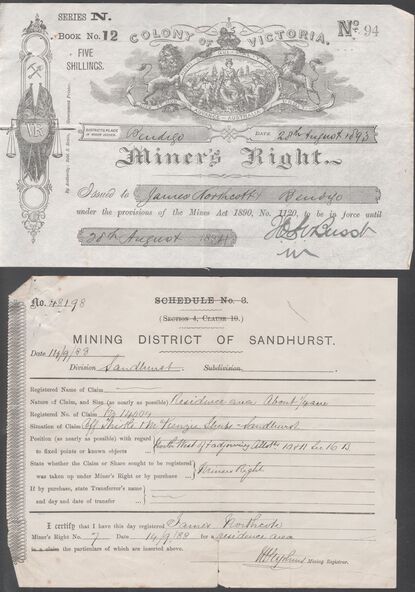 SERIES N.
BOOK No. 12
FIVE
SHILLINGS.
COLONY OF VICTORIA.
No. 94
ADVANCE AUSTRALIA
VR
DISTRICT & PLACE
Bendigo
DATE 28th August 1893
Miner's Right.
Issued to James Northcott Bendigo
under the provisions of the Mines Act 1890, No. 1120, to be in force until
28th August 1894
No. 48198
SCHEDULE No. 3.
(SECTION 4, CLAUSE 10.)
MINING DISTRICT OF SANDHURST.
Date 14/9/88
Division Sandhurst Subdivision
Registered Name of Claim
Nature of Claim, and Size (as nearly as possible) Residence area About 1/4 acre
Registered No. of Claim 14004
Situation of Claim Off McKenzie Sandhurst
Position (as nearly as possible) with regard
to fixed points or known objects North West of & adjoining Allott 198 Sec 16 D
State whether the Claim or Share sought to be registered
was taken up under Miner's Right or by purchase Miners Right
If by purchase, state Transferror's name
and day and date of transfer
I certify that I have this day registered James Northcote
Miner's Right No. 7 Date 14/9/88 for a residence area
in a claim the particulars of which are inserted above.
Mining Registrar.